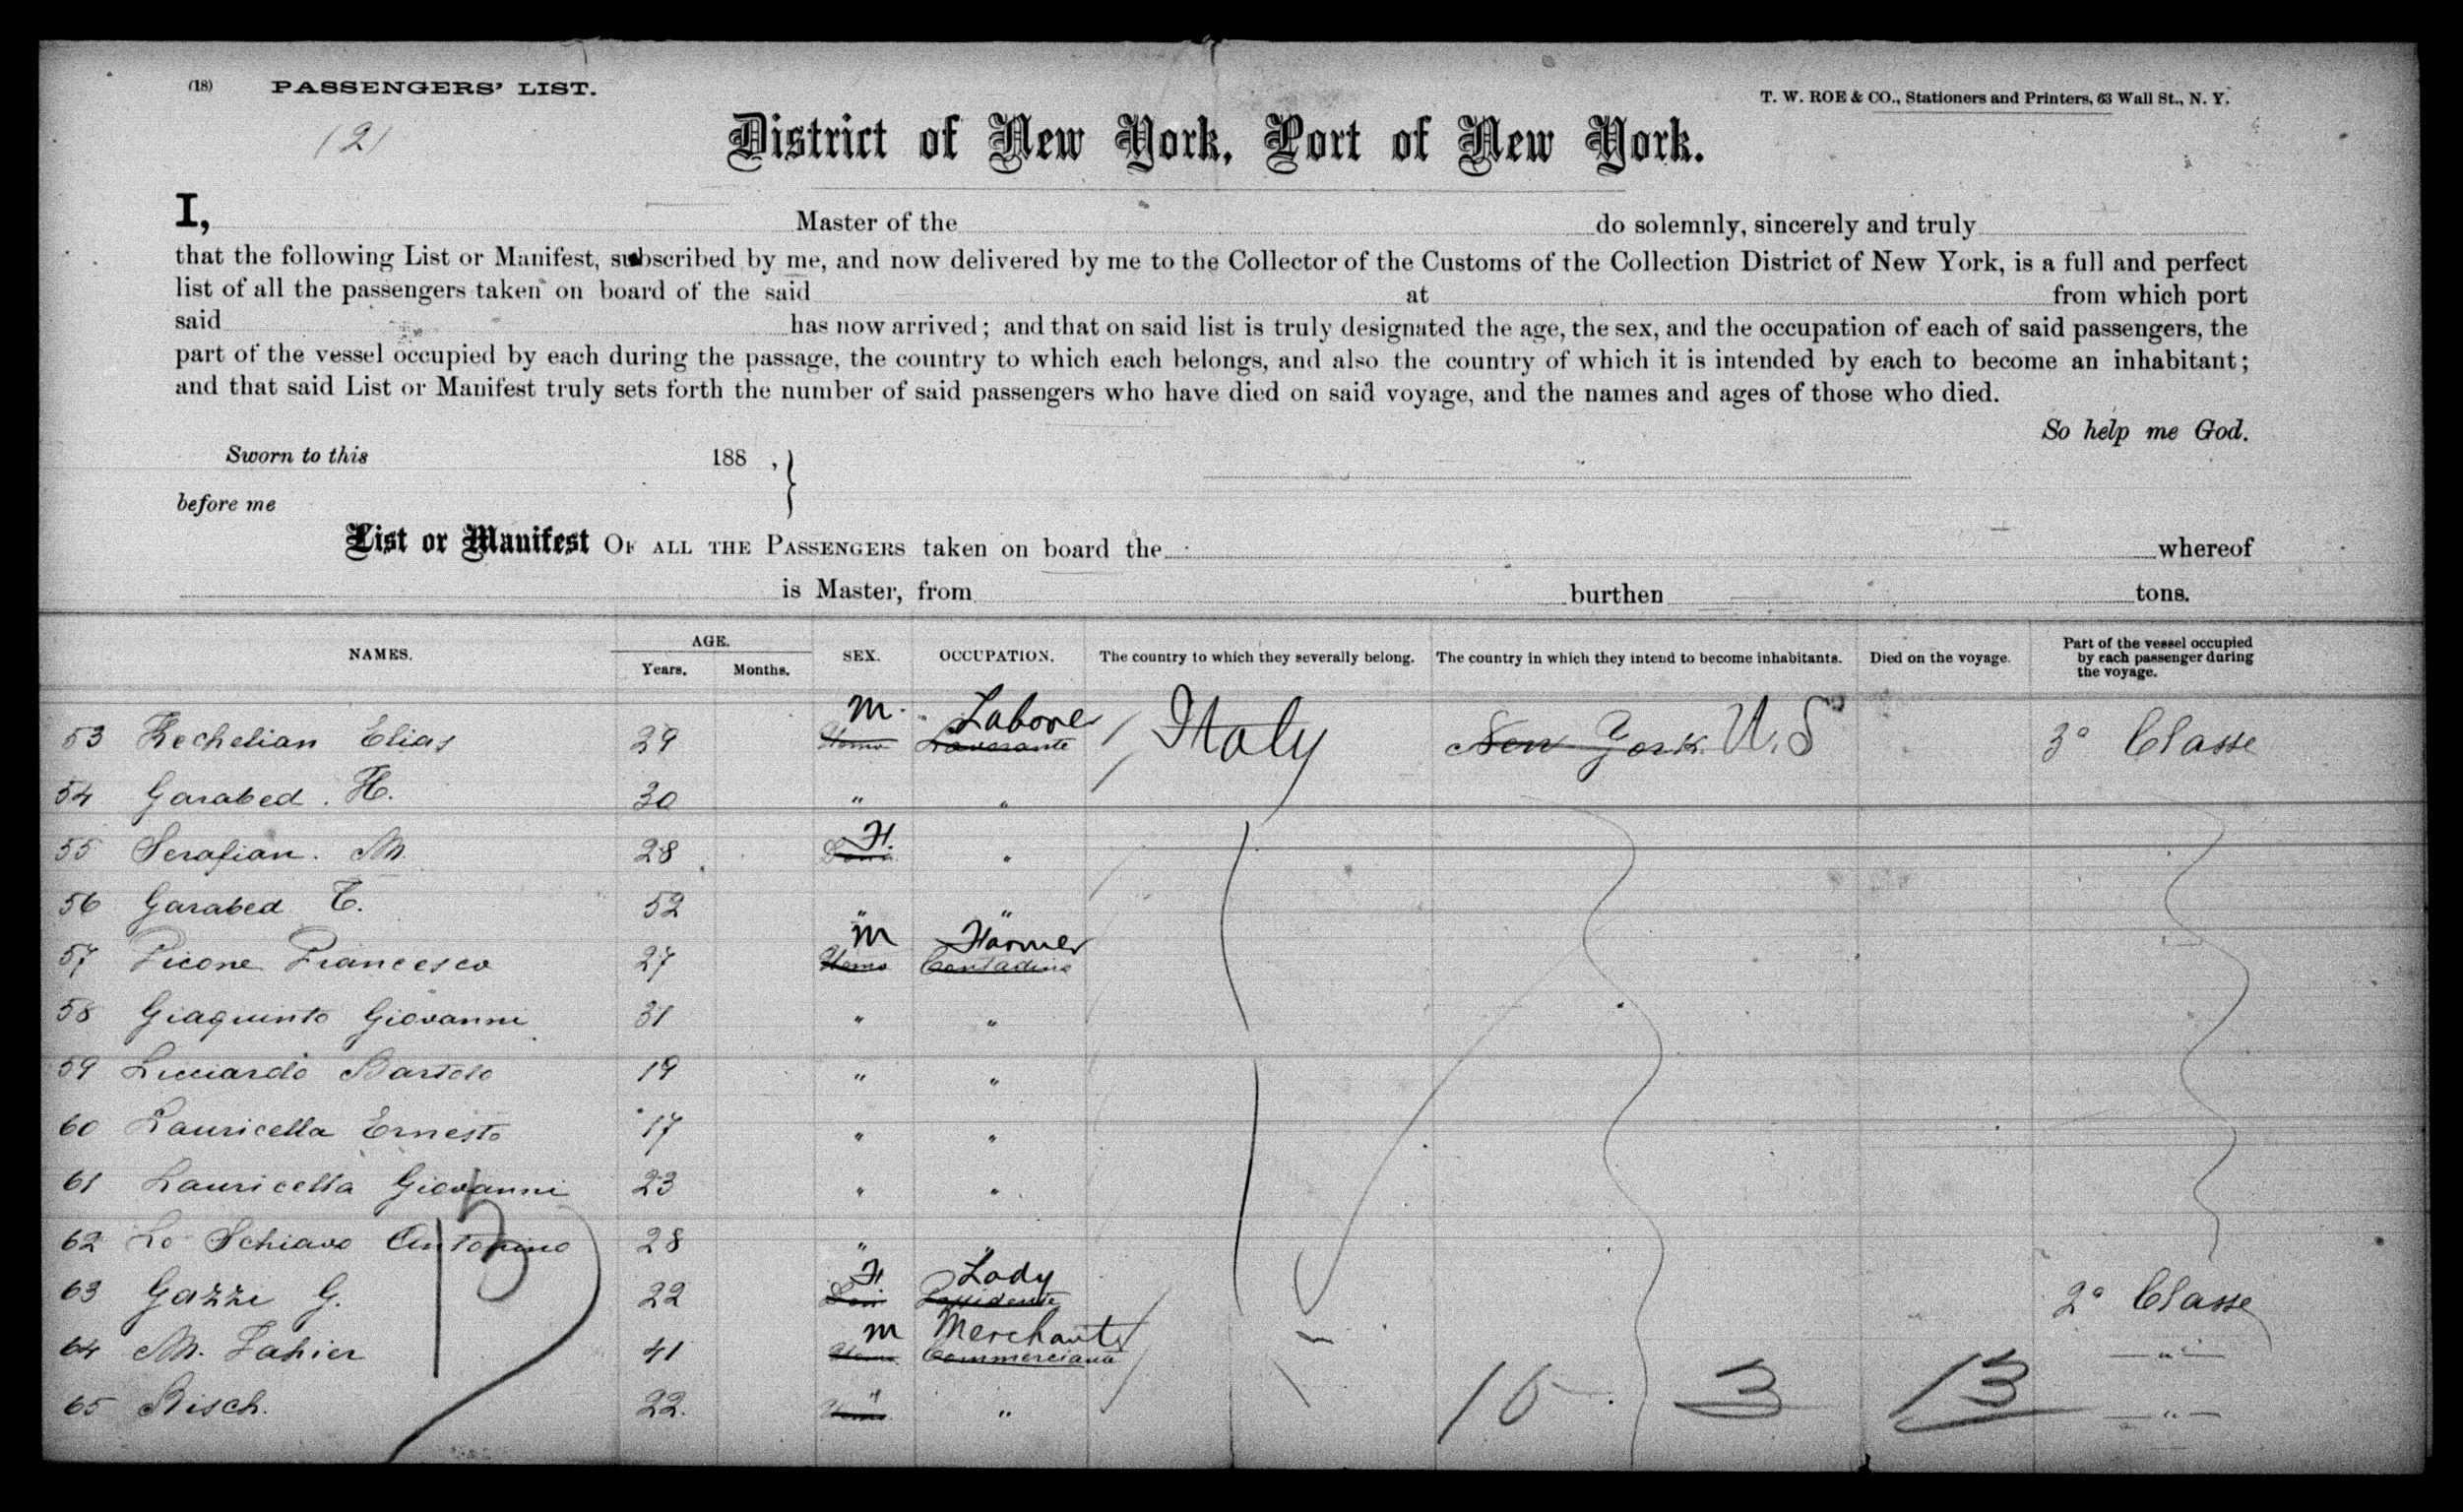 (18) PASSENGERS' LIST.
T. W. ROE & CO., Stationers and Printers, 63 Wall St., N. Y.
(2)
District of New York, Port of New York.
I, Master of the do solemnly, sincerely and truly
that the following List or Manifest, subscribed by me, and now delivered by me to the Collector of the Customs of the Collection District of New York, is a full and perfect
list of all the passengers taken on board of the said at from which port
said has now arrived; and that on said list is truly designated the age, the sex, and the occupation of each of said passengers, the
part of the vessel occupied by each during the passage, the country to which each belongs, and also the country of which it is intended by each to become an inhabitant;
and that said List or Manifest truly sets forth the number of said passengers who have died on said voyage, and the names and ages of those who died.
So help me God.
Sworn to this 188 ,
before me
List or Manifest OF ALL THE PASSENGERS taken on board the whereof
is Master, from burthen tons.
NAMES. AGE. Years. Months. SEX. OCCUPATION. The country to which they severally belong. The country in which they intend to become inhabitants. Died on the voyage. Part of the vessel occupied by each passenger during the voyage.
M. Labore
53 Kechelian Elias 29 Uomo Lavorante Italy New York U.S 3a Classe
54 Garabed . H. 30 " "
F.
55 Serafian. M. 28 "
56 Garabed T. 52 " "
M Farmer
57 Picone Francesco 27 Uomo Contadino
58 Giaquinto Giovanni 31 " "
59 Licciardo Bartolo 19 " "
60 Lauricella Ernesto 17 " "
61 Lauricella Giovanni 23 " "
62 Lo Schiavo Antonino 28 " "
F Lady
63 Gazzi G. 22 2a Classe
M Merchant
64 M. Lahier 41 Uomo Commerciante "
65 Bisch. 22. Uomo " " "
13
10 3 13